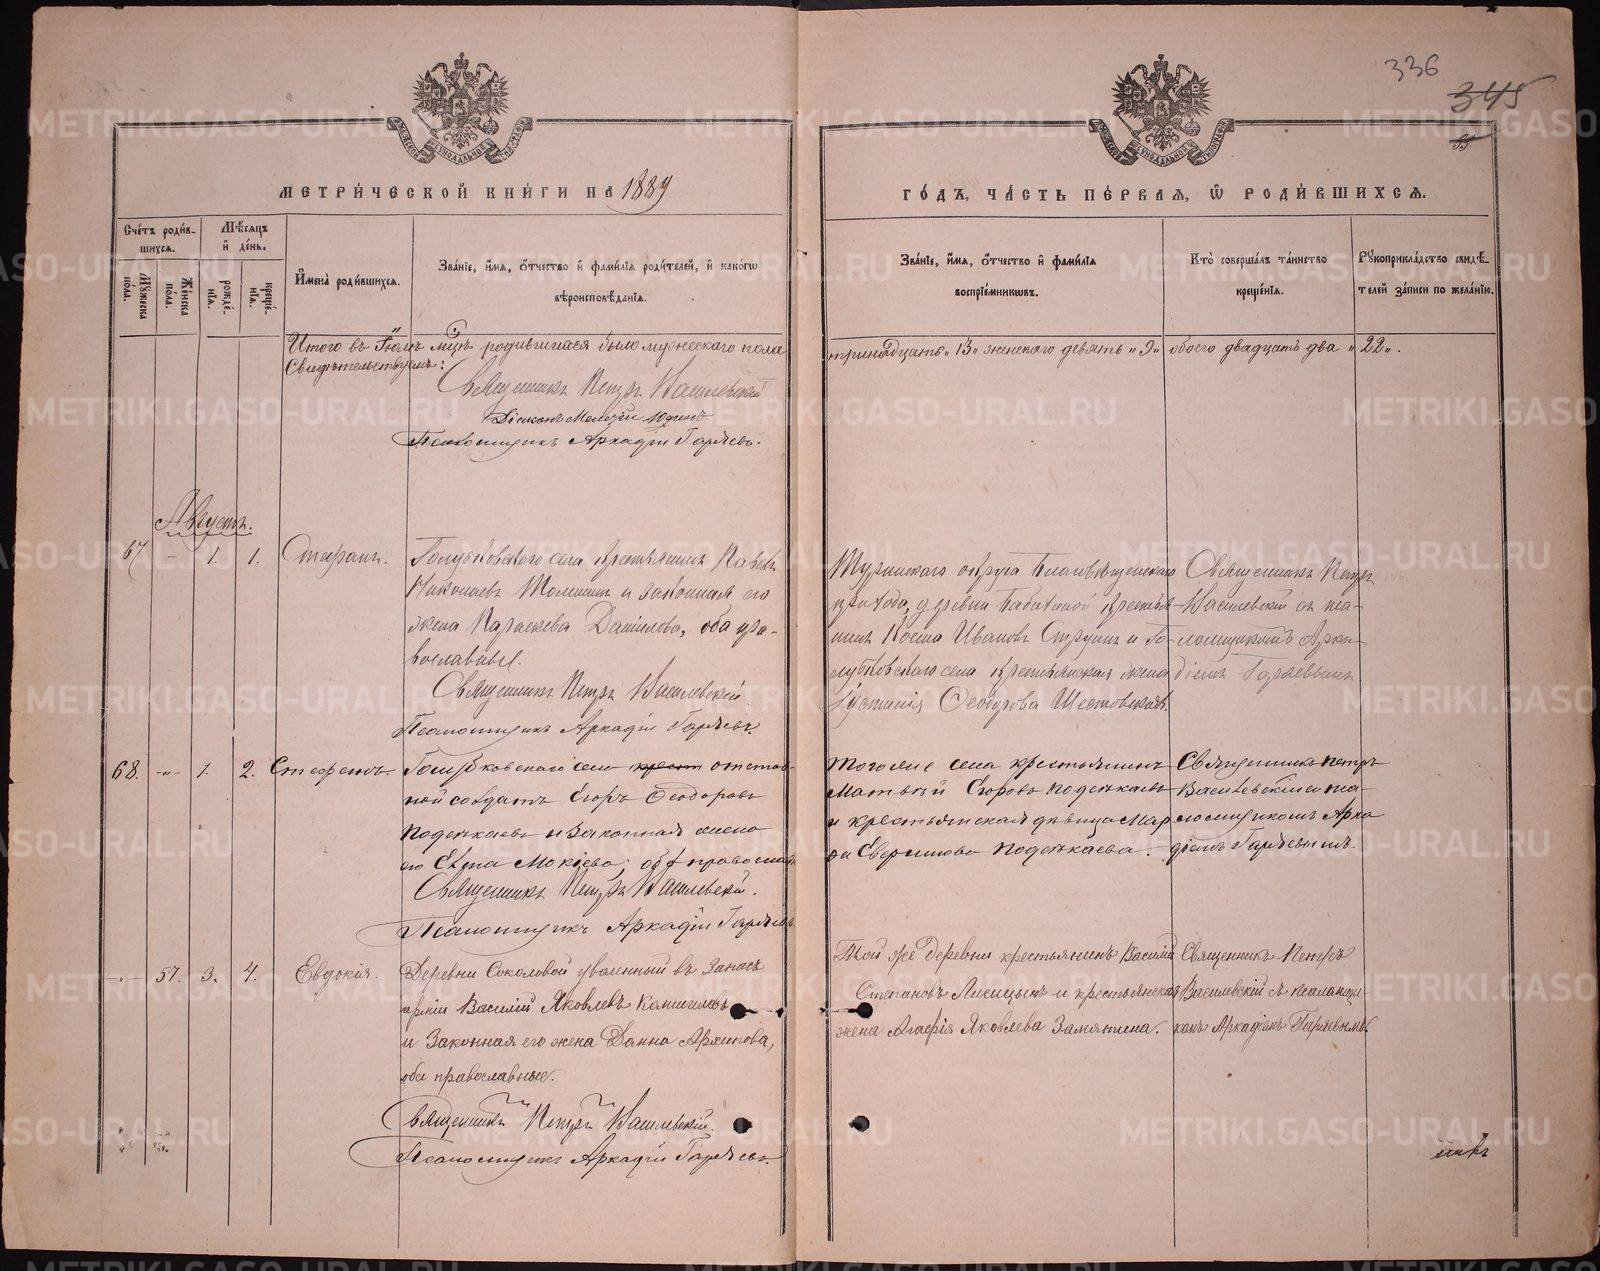 336
345
55
МЕТРИ́ЧЕСКОЙ КНИ́ГИ НА 1889
ГО́ДЪ, ЧА́СТЬ ПЕ́РВАЯ, Ѿ РОДИ́ВШИХСЯ.
Сче́тъ роди́в-
шихся.
Мѣ́сяцъ
и҆ де́нь.
Му́жеска
по́ла.
Же́нска
по́ла.
рожде́-
нїя.
креще́-
нїя.
И҆мена̀ роди́вшихся.
Зва́нїе, и҆́мя, ѻ҆́тчество и҆ фами́лїя роди́телей, и҆ како́гѡ
вѣроисповѣ́данїя.
Зва́нїе, и҆́мя, ѻ҆́тчество и҆ фами́лїя
воспрїе́мникѡвъ.
Кто̀ соверша́лъ та́инство
креще́нїя.
Рꙋкоприкла́дство свидѣ́-
телей за́писи по жела́нїю.
Итого въ Іюлѣ мѣц. родившихся было мужескаго пола
тринадцать „13" женскаго девять „9" обоего двадцать два „22".
Свидѣтельствуемъ:
Священникъ Петръ Василевскій
Діаконъ
Псаломщикъ Аркадій Гаряевъ.
Августъ.
67. - 1. 1. Стефанъ.
Голубковскаго села крестьянинъ Павелъ
Николаевъ Томшинъ и законная его
жена Параскева Данилова, оба пра-
вославные.
Священникъ Петръ Василевскій
Псаломщикъ Аркадій Гаряевъ.
Туринскаго округа Благовѣщенскаго
прихода, деревни крестья-
нинъ Косма Ивановъ и Го-
лубковскаго села крестьянская жена
Іустинія Ѳеодорова Шестовская.
Священникъ Петръ
Василевскій съ пса-
ломщикомъ Арка-
діемъ Гаряевымъ
68. -„- 1. 2. Стефанъ.
Голубковскаго села крест отстав-
ной солдатъ Егоръ Ѳеодоровъ
Подепкаевъ и законная жена
его Елена Мокіева; оба православ
Священникъ Петръ Василевскій.
Псаломщикъ Аркадій Гаряевъ
Того же села крестьянинъ
Матвѣй Егоровъ Подепкаевъ
и крестьянская дѣвица Мар
Подепкаева.
Священникъ Петръ
Василевскій съ пса-
ломщикомъ Арка
діемъ Гаряевымъ.
57. 3. 4. Евдокія.
Деревни Соколовой уволенный въ запасъ
арміи Василій Яковлевъ
и законная его жена Домна Архипова,
оба православные.
Священникъ Петръ Василевскій.
Псаломщикъ Аркадій Гаряевъ.
Той же деревни крестьянинъ Василій
Степановъ Лисицынъ и крестьянская
жена Агафія Яковлева Замятина.
Священникъ Петръ
Василевскій съ псаломщи-
комъ Аркадіемъ Гаряевымъ.
METRIKI.GASO-URAL.RU